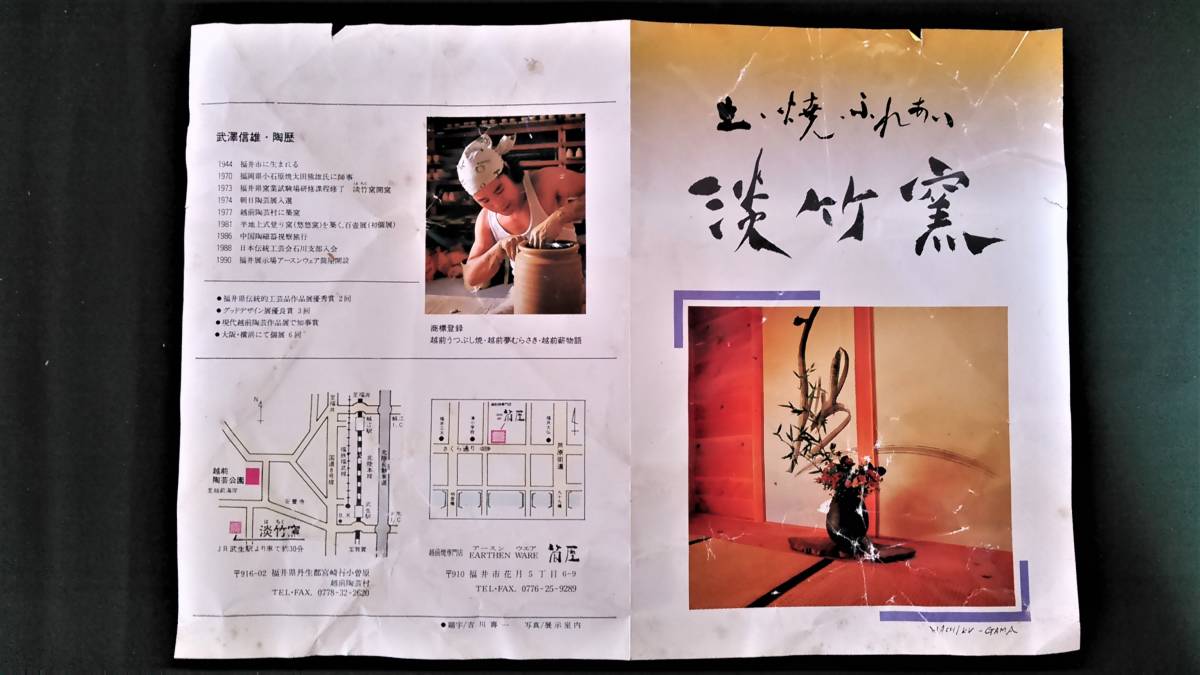 武澤信雄・陶歴
1944 福井市に生まれる
1970 福岡県小石原焼太田熊雄氏に師事
1973 福井県窯業試験場研修課程修了 淡竹窯開窯
はちく
1974 朝日陶芸展入選
1977 越前陶芸村に築窯
1981 半地上式登り窯(悠悠窯)を築く、百壺展(初個展)
1986 中国陶磁器視察旅行
1988 日本伝統工芸会石川支部入会
1990 福井展示場アースンウェア筒屋開設
●福井県伝統的工芸品作品展優秀賞 2回
●グッドデザイン展優良賞 3回
●現代越前陶芸作品展で知事賞
●大阪・横浜にて個展 6回
商標登録
越前うつぶし焼・越前夢むらさき・越前薪物語
N
至福井
鯖江駅
鯖江I.C
国道8号線
福鉄福武線
北陸本線
北陸高速自動車道
越前
陶芸公園
至越前海岸
安養寺
武生駅
I.C
はちく
淡竹窯
至敦賀
JR武生駅より車で約30分
〒916-02 福井県丹生郡宮崎村小曽原
越前陶芸村
TEL・FAX. 0778-32-2620
筒屋
さくら通り
芦原街道
越前焼専門店 アースン ウエア
EARTHEN WARE 筒屋
〒910 福井市花月5丁目6-9
TEL・FAX. 0776-25-9289
●題字/吉川壽一 写真/展示室内
土、焼、ふれあい
淡竹窯
HACHIKU-GAMA